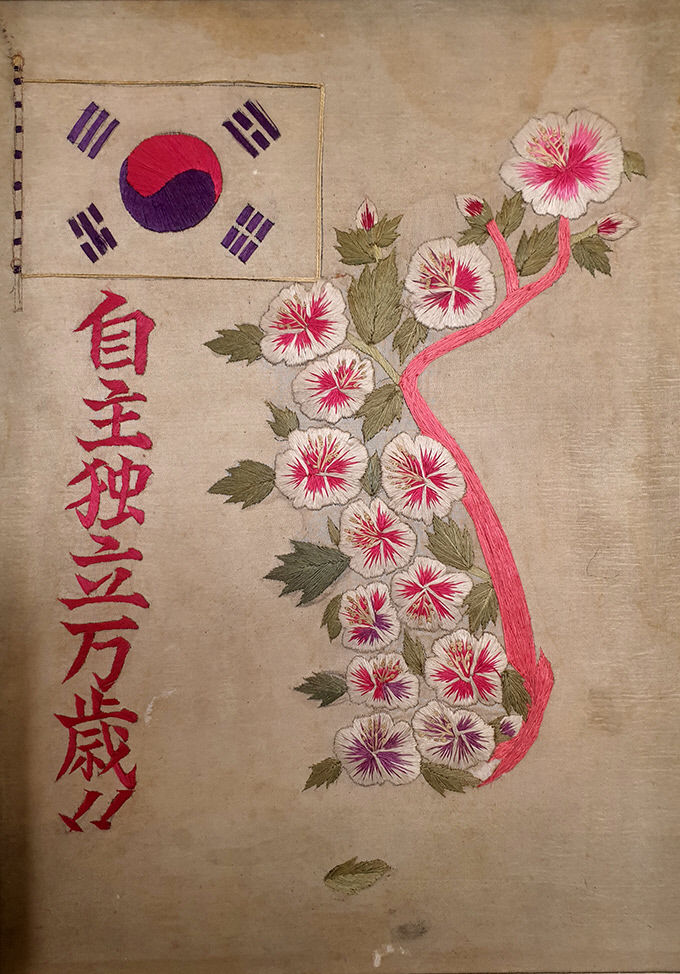 自主独立万歳!!